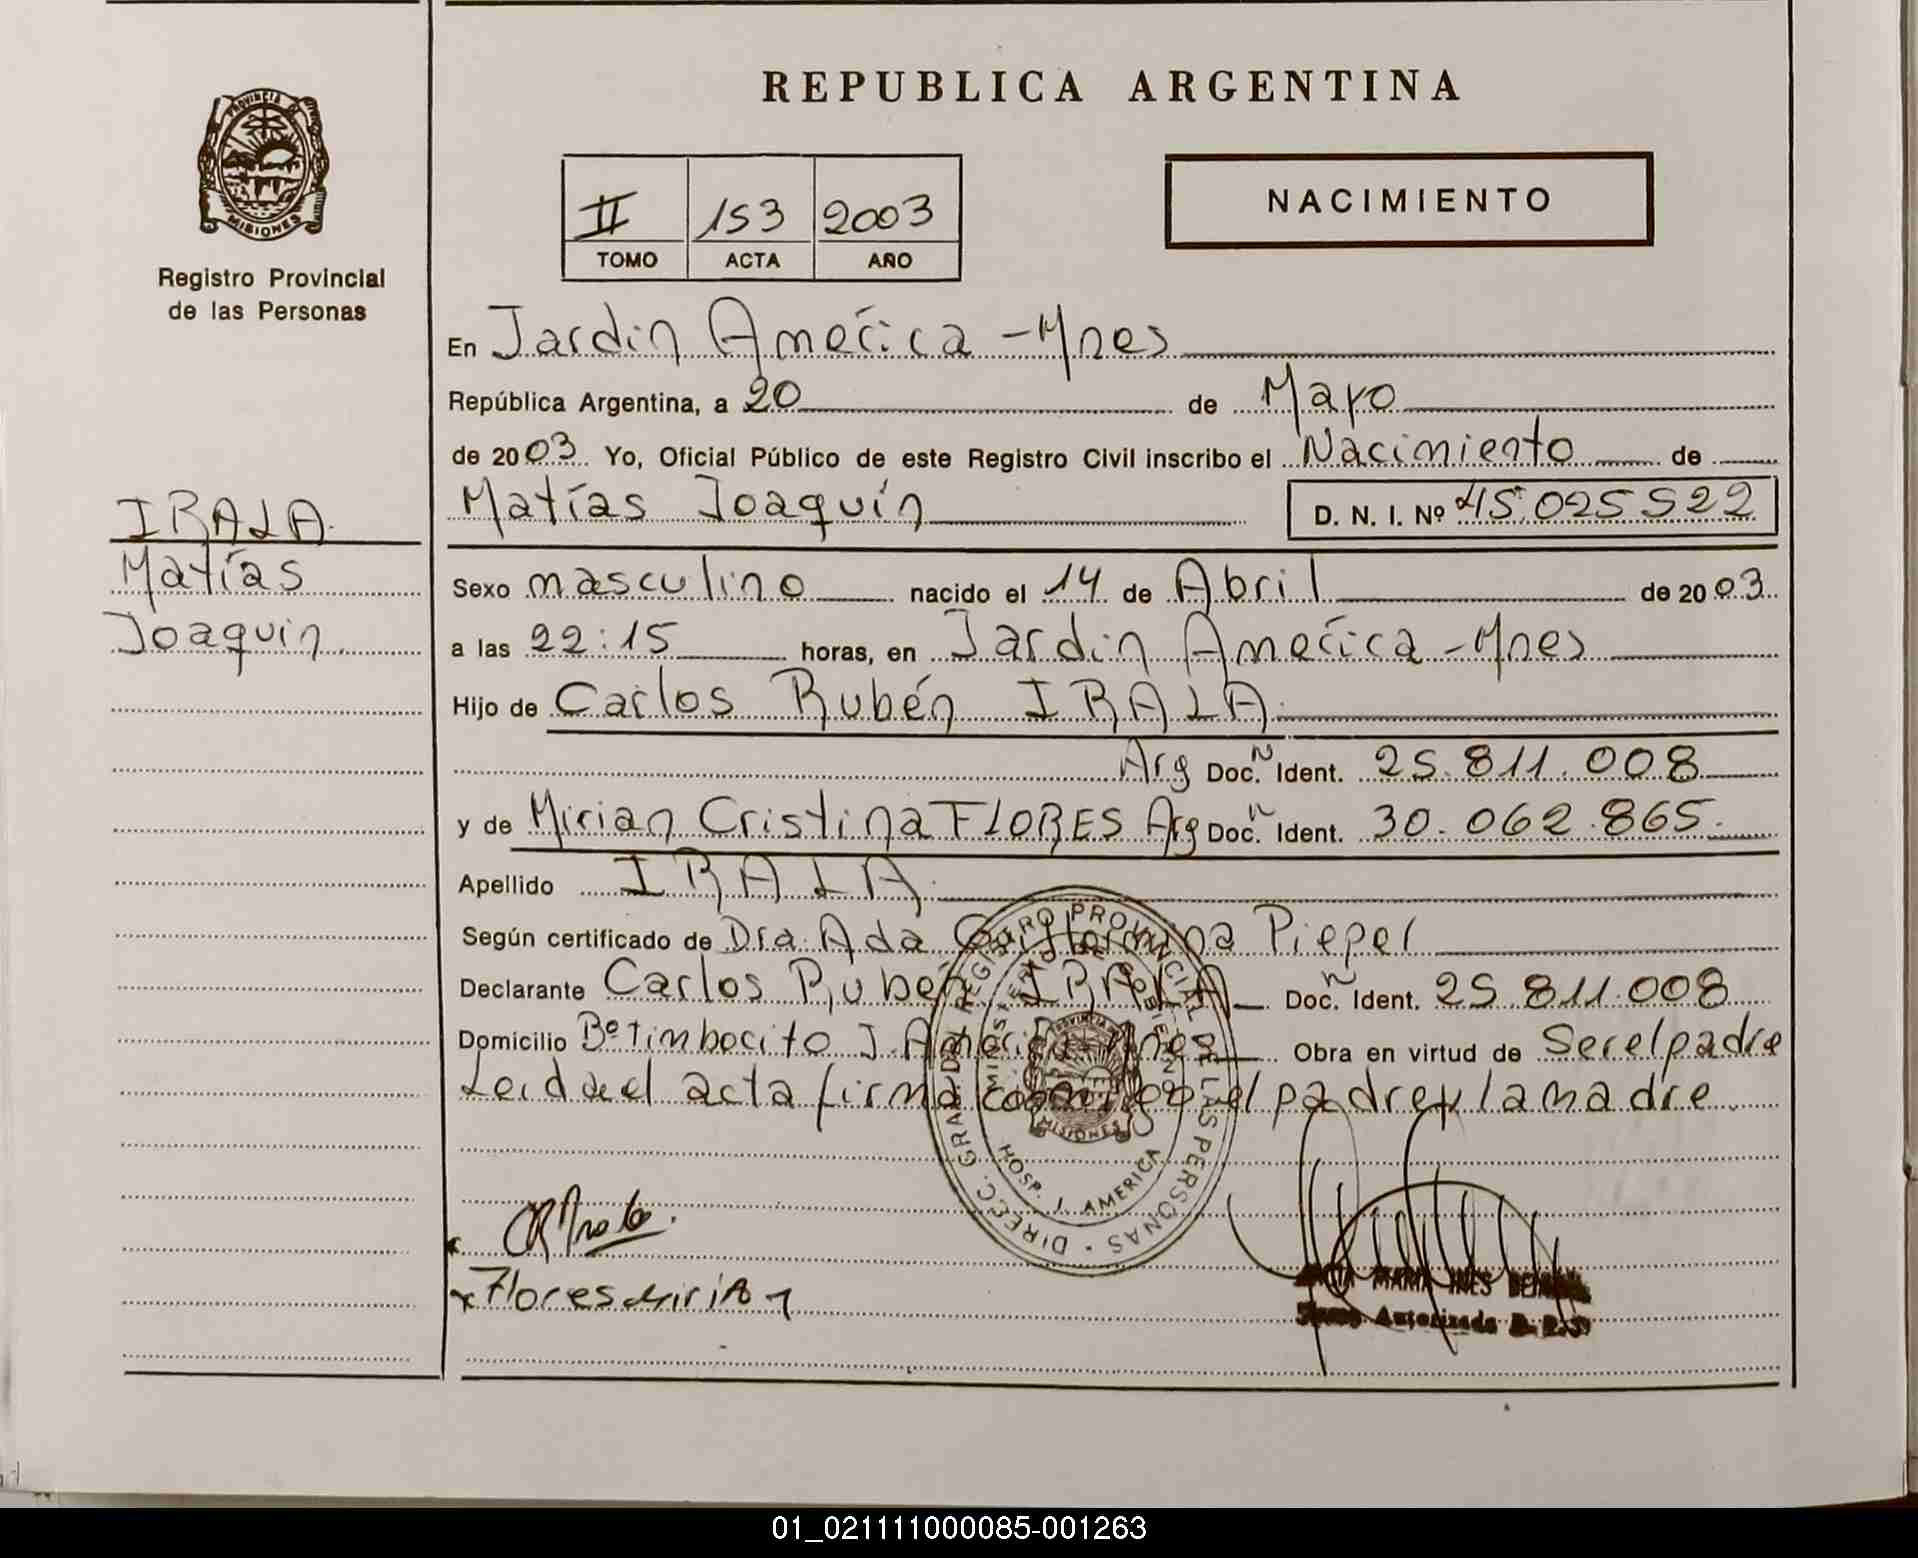 REPUBLICA ARGENTINA
PROVINCIA DE MISIONES
Registro Provincial
de las Personas
II 153 2003
TOMO ACTA AÑO
NACIMIENTO
En Jardin América - Mnes
República Argentina, a 20 de Mayo
de 2003 Yo, Oficial Público de este Registro Civil inscribo el Nacimiento de
Matías Joaquín D. N. I. Nº 45.025522
IRALA
Matías
Joaquin
Sexo masculino nacido el 14 de Abril de 2003
a las 22:15 horas, en Jardin América - Mnes
Hijo de Carlos Rubén IRALA
Arg Doc. N Ident. 25.811.008
y de Mirian Cristina FLORES Arg Doc. N Ident. 30.062.865
Apellido IRALA
Según certificado de Dra. Ada Pieper
Declarante Carlos Rubén IRALA Doc. N Ident. 25.811.008
Domicilio Bº Timbocito J. América Mnes Obra en virtud de Ser el padre
Leida el acta firma conmigo el padre y la madre
DIRECC. GRAL. DEL REGISTRO PROVINCIAL DE LAS PERSONAS
MINISTERIO DE GOBIERNO
PROVINCIA DE MISIONES
HOSP. J. AMERICA
Flores Mirian
MARIA INES
Autorizada
01_021111000085-001263